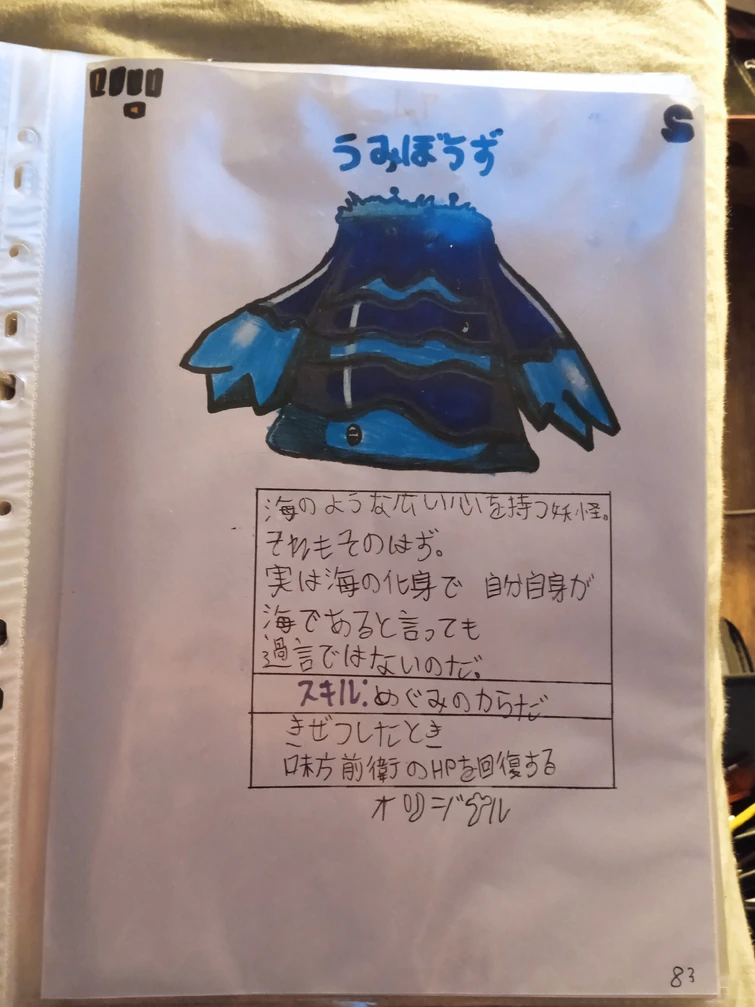 S
うみぼうず
海のような広い心を持つ妖怪。
それもそのはず。
実は海の化身で 自分自身が
海であると言っても
過言ではないのだ。
スキル:めぐみのからだ
きぜつしたとき
味方前衛のHPを回復する
オリジナル
83